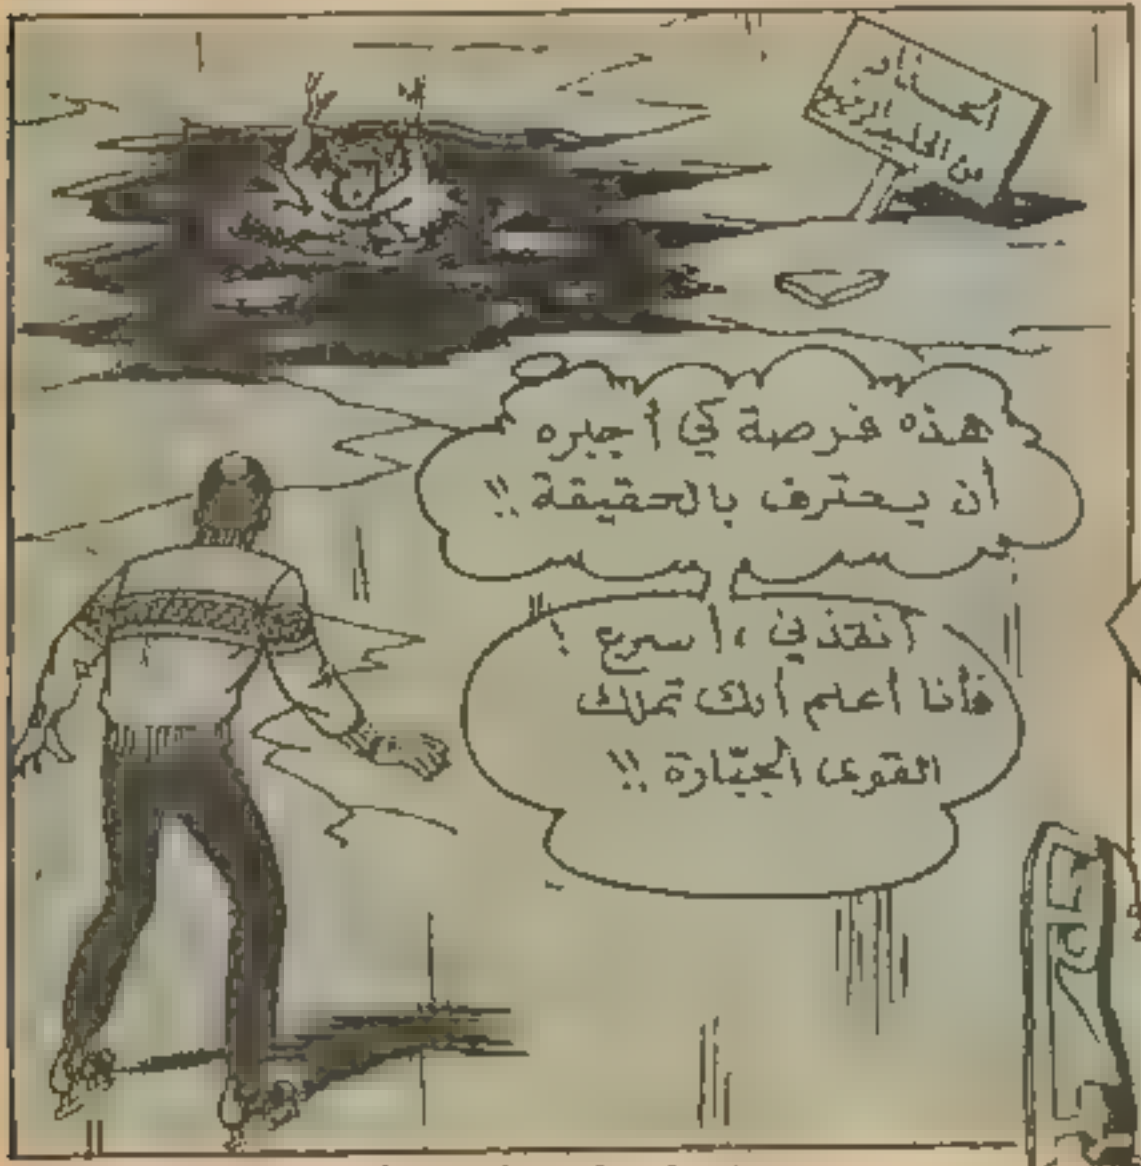 الحذار
من الجليد الرقيق
هذه فرصة كي أجبره
أن يعترف بالحقيقة !!
أنقذني ، أسرع !
فأنا أعلم أنك تملك
القوى الجبّارة !!